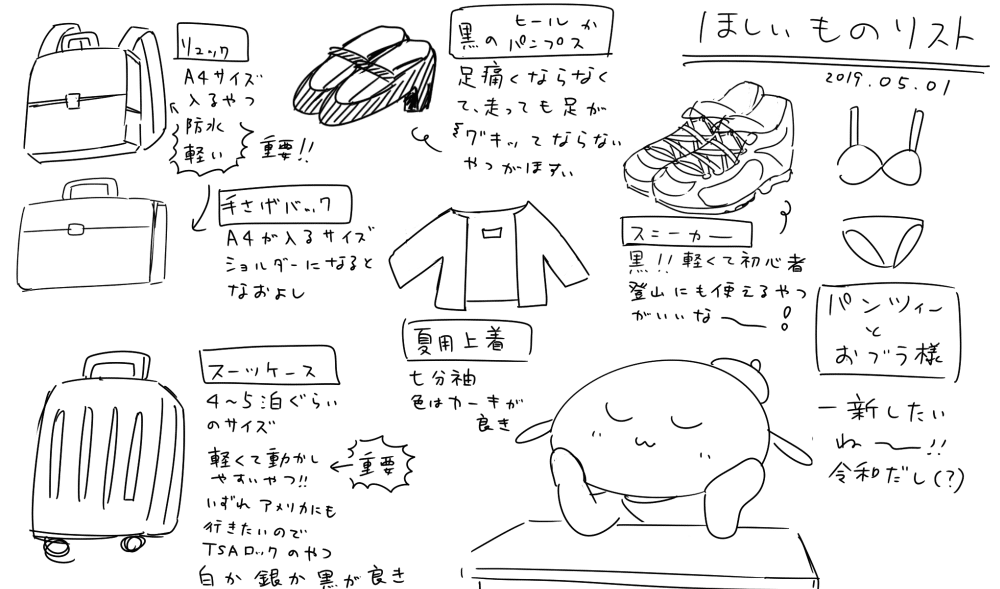 ほしいものリスト
2019.05.01
リュック
A4サイズ
入るやつ
防水
軽い
重要!!
手さげバック
A4が入るサイズ
ショルダーになると
なおよし
スーツケース
4〜5泊ぐらい
のサイズ
軽くて動かし
やすいやつ!!
重要
いずれアメリカにも
行きたいので
TSAロックのやつ
白か銀か黒が良き
黒のヒールか
パンプス
足痛くならなく
て、走っても足が
グキッてならない
やつがほすぃ
夏用上着
七分袖
色はカーキが
良き
スニーカー
黒!!軽くて初心者
登山にも使えるやつ
がいいな〜!
パンツィー
と
おブラ様
一新したい
ね〜!!
令和だし(?)